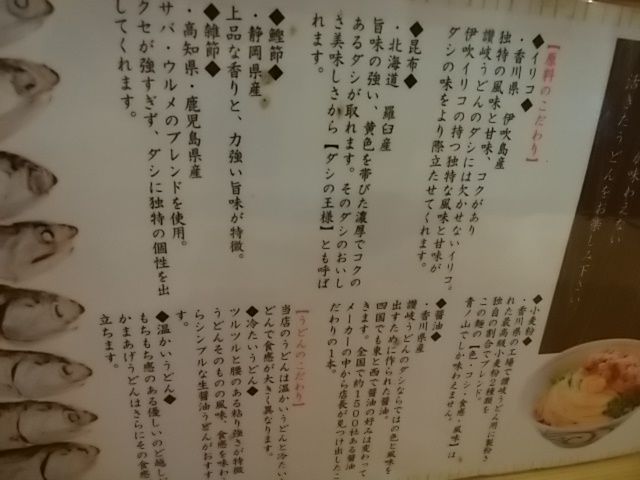 味わえない
活きたうどんをお楽しみ下さい。
【原料のこだわり】
◆イリコ◆
・香川県 伊吹島産
独特の風味と甘味、コクがあり
讃岐うどんのダシには欠かせないイリコ。
伊吹イリコの持つ独特な風味と甘味が
ダシの味をより際立たせてくれます。
◆昆布◆
・北海道 羅臼産
旨味の強い、黄色を帯びた濃厚でコクの
あるダシが取れます。そのダシのおいし
さ美味しさから【ダシの王様】とも呼ば
れます。
◆鰹節◆
・静岡県産
上品な香りと、力強い旨味が特徴。
◆雑節◆
・高知県・鹿児島県産
サバ・ウルメのブレンドを使用。
クセが強すぎず、ダシに独特の個性を出
してくれます。
◆小麦粉◆
・香川県の工場で讃岐うどん用に製粉さ
れた最高級小麦粉2種類を
独自の割合でブレンド。
この麺の【色・コシ・食感・風味】は
青ノ山でしか味わえません。
◆醤油◆
・香川県産
讃岐うどんのダシならではの色と風味を
出すために作られた醤油。
四国でも東と西で醤油の好みは変わって
きます。全国で約1500社ある醤油
メーカーの中から店長が見つけ出したこ
だわりの1本。
【うどんのこだわり】
当店のうどんは温かいうどんと冷たいう
どんで食感が大きく異なります。
◆冷たいうどん◆
ツルツルと腰のある粘り強さが特徴
うどんそのものの風味、食感を味わ
らシンプルな生醤油うどんがおすす
す。
◆温かいうどん◆
もちもち感のある優しいのど越し
かまあげうどんはさらにその食感
立ちます。